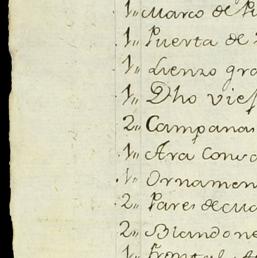 1,, Marco de
1,, Puerta de
1,, Lienzo gra
1,, Dho vie
2,, Campanas
1,, Ara Con
1,, Ornamen
2,, Pares de
2,, Blandone
1,, Frontal